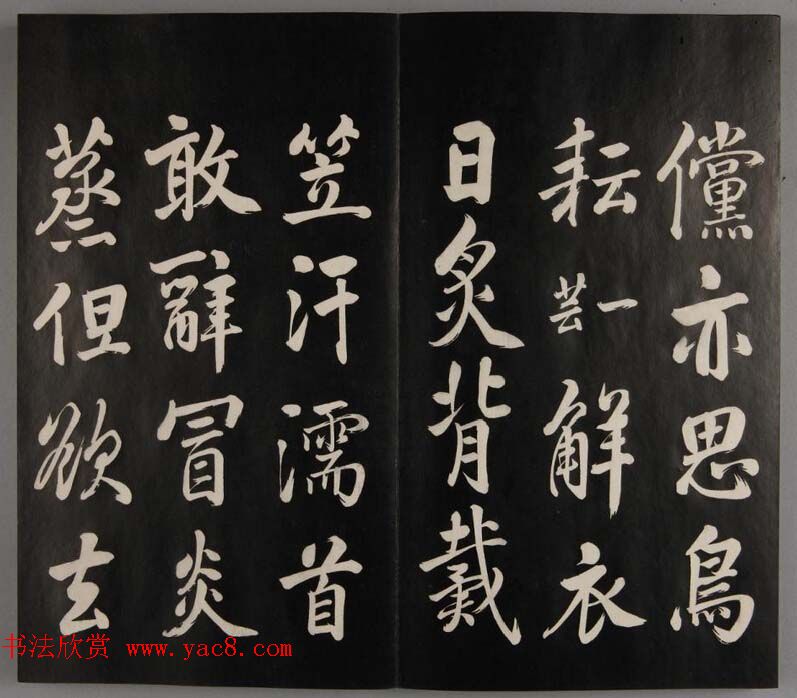 儻亦思鳥
耘一芸解衣
日炙背戴
笠汗濡首
敢辭冒炎
蒸但欲去
书法欣赏 www.yac8.com